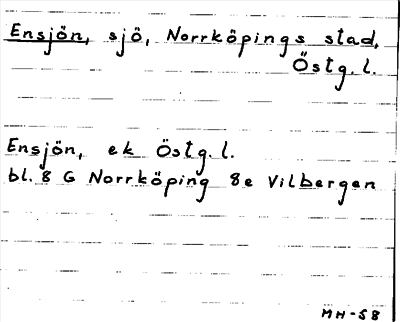 Ensjön, sjö, Norrköpings stad,
Östg.l.
Ensjön, ek Östg.l.
bl. 8 G Norrköping 8e Vilbergen
MH-58